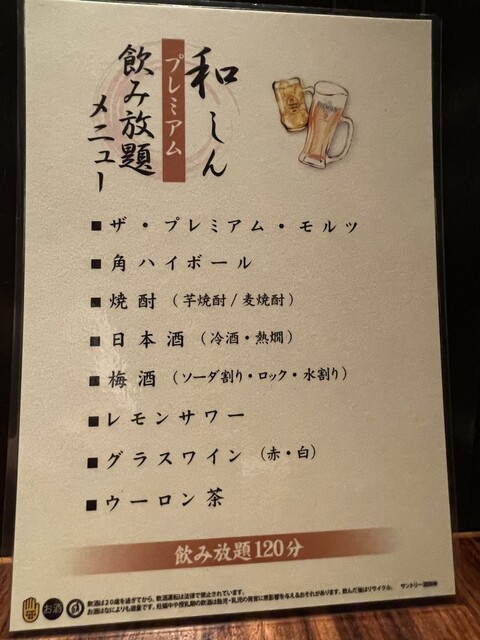 和しん
プレミアム
飲み放題
メニュー
■ザ・プレミアム・モルツ
■角ハイボール
■焼酎（芋焼酎/麦焼酎）
■日本酒（冷酒・熱燗）
■梅酒（ソーダ割り・ロック・水割り）
■レモンサワー
■グラスワイン（赤・白）
■ウーロン茶
飲み放題120分
お酒
飲酒は20歳を過ぎてから。飲酒運転は法律で禁止されています。
お酒はなによりも適量です。妊娠中や授乳期の飲酒は胎児・乳児の発育に悪影響を与えるおそれがあります。飲んだ後はリサイクル。
サントリー